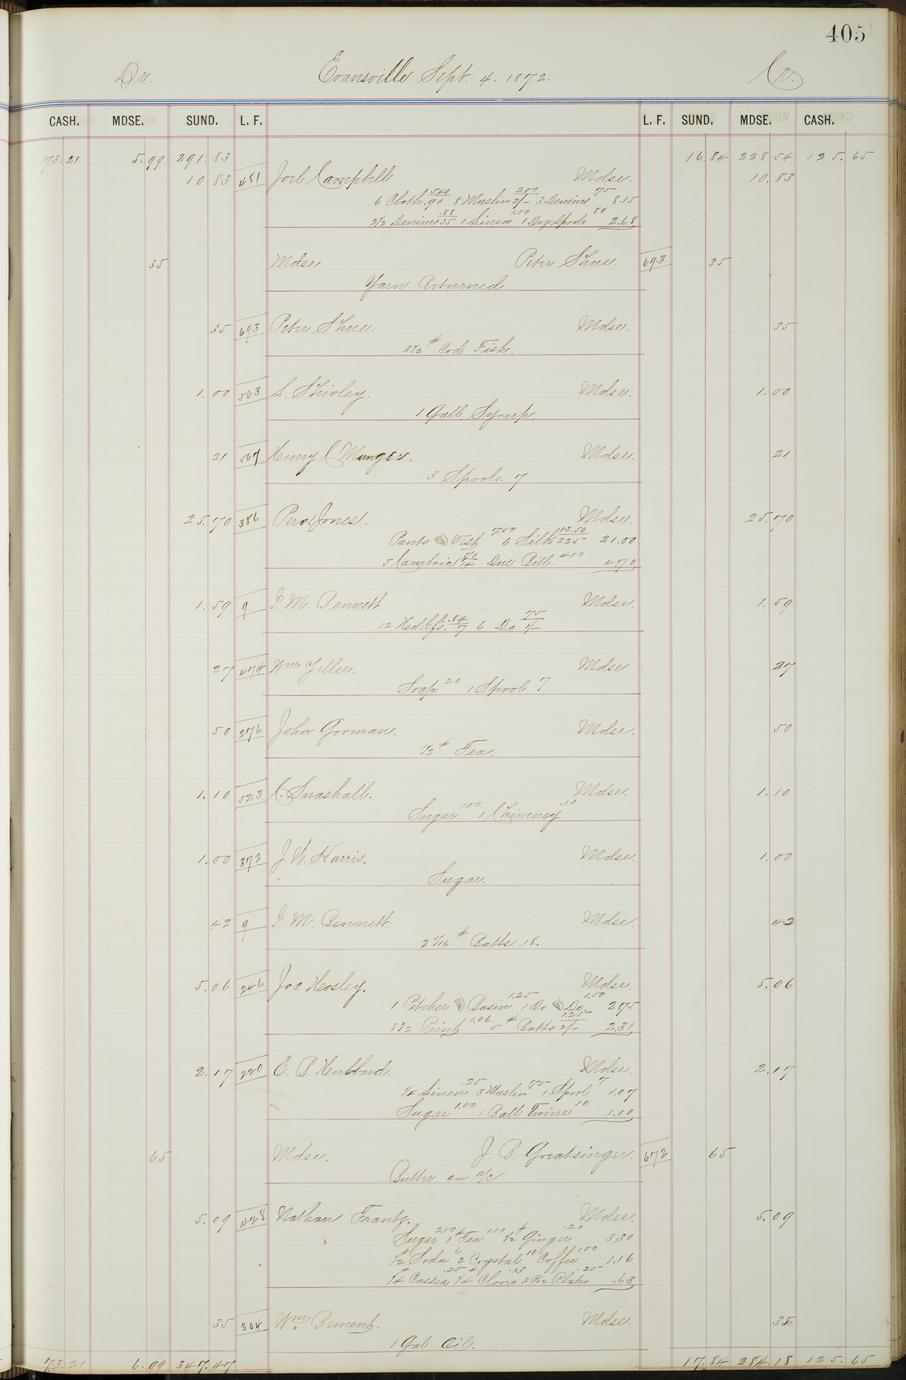 405
Dr. Evansville Sept. 4. 1872. Cr.
CASH. MDSE. SUND. L. F. L. F. SUND. MDSE. CASH.
73.21 5.99 291.83 16.84 228.54 125.65
10.83 451 Joel Campbell Mdse. 10.83
6 Cloth 90 8 Muslin 2/- 3 Denims 75 8.15
2 1/2 Denims 35 1 Linen 1.00 1 Doz Spools 80 2.68
35 Mdse Peter Shue 693 35
Yarn Returned
35 693 Peter Shue. Mdse. 35
3 1/2 # Cod Fish.
1.00 563 S. Shirley. Mdse. 1.00
1 Gall Syrup
21 567 Henry C Munger. Mdse. 21
3 Spools 7
25.70 386 Jones. Mdse. 25.70
Pants & Vest 7.50 6 Silk 13.50 225 21.00
5 Cambric Due Bill 4.00 4.70
1.59 9 M. Bennett Mdse. 1.59
12 Hdkfs. .84 7 6 Do 75 1/-
27 474 Wm Yeller. Mdse. 27
Soap 20 1 Spool 7
50 276 John Gorman. Mdse. 50
1/2 # Tea.
1.10 523 C. Snashall. Mdse. 1.10
Sugar 1.00 1 Chimney .10
1.00 372 J. W. Harris. Mdse. 1.00
Sugar.
42 9 M. Bennett Mdse. 42
2 7/16 # Batts .18.
5.06 246 Jos. Hosley. Mdse. 5.06
1 Pitcher & Basin 1.25 1 Do & Do. 1.50 2.75
8 1/2 Print 1.06 5 # Batts 2/- 1.25 2.31
2.17 220 E. B. Hubbard Mdse. 2.17
1/4 Linen .25 3 Muslin 75 1 Spool 7 1.07
Sugar 1.00 1 Ball Twine 10 1.10
65 Mdse. J. B. Greatsinger. 672 65
Butter on a/c
5.09 428 Nathan Frantz. Mdse. 5.09
Sugar 2.00 1 # Tea 1.10 1/2 # Ginger .20 3.30
1/2 # Soda 6 2 Crystal 10 Coffee 1.00 1.16
1/4 # Cassia .25 1/4 # Cloves .13 2 Plates .25 .63
35 304 Wm. Piment. Mdse. 35
1 Gal Oil.
73.21 6.99 347.47 17.84 284.18 125.65